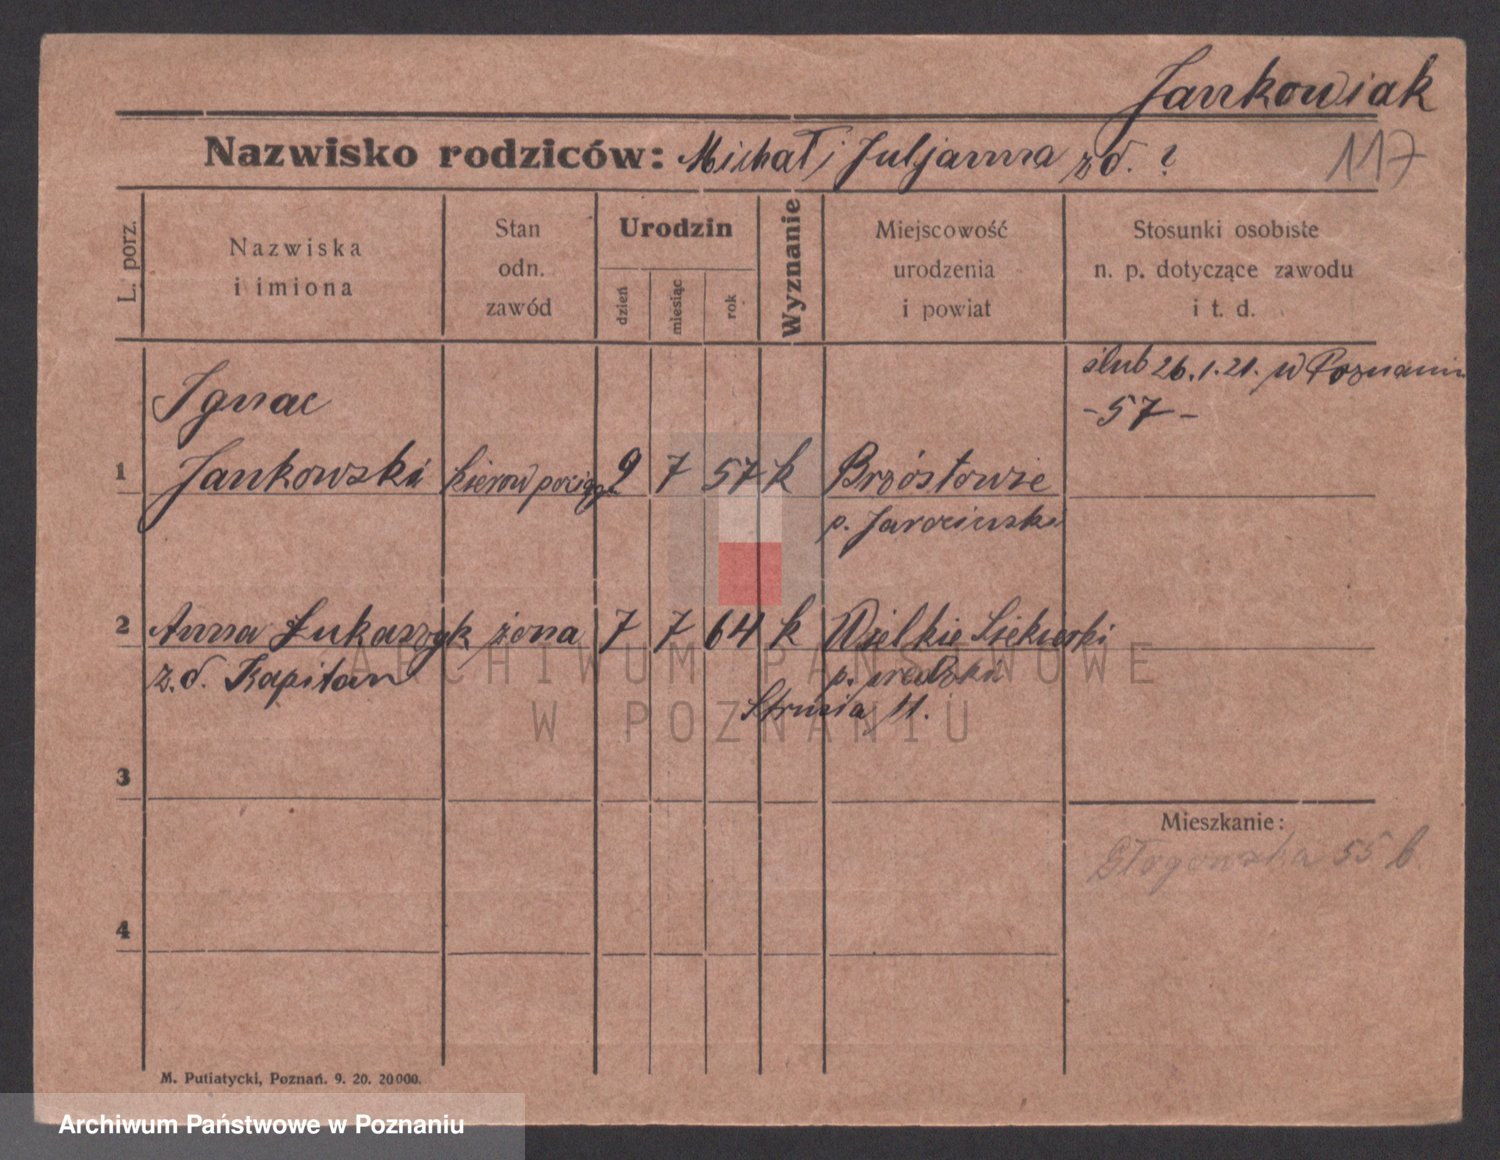 Jankowiak
Nazwisko rodziców: Michał i Juljanna zd. ?
117
L. porz.
Nazwiska
i imiona
Stan
odn.
zawód
Urodzin
dzień
miesiąc
rok
Wyznanie
Miejscowość
urodzenia
i powiat
Stosunki osobiste
n. p. dotyczące zawodu
i t. d.
ślub 26.1.21. w Poznaniu
-57-
Ignac
1 Jankowski kierow pociągu 9 7 57 k Brzóstowie
p. Jarocinski
2 Anna Łukaszyk żona 7 7 64 k Wielkie Siekierki
z.d. Kapitan p. średzki
Strusia 11.
ARCHIWUM PAŃSTWOWE
W POZNANIU
3
Mieszkanie:
Głogowska 55 b.
4
M. Putiatycki, Poznań. 9. 20. 20000.
Archiwum Państwowe w Poznaniu